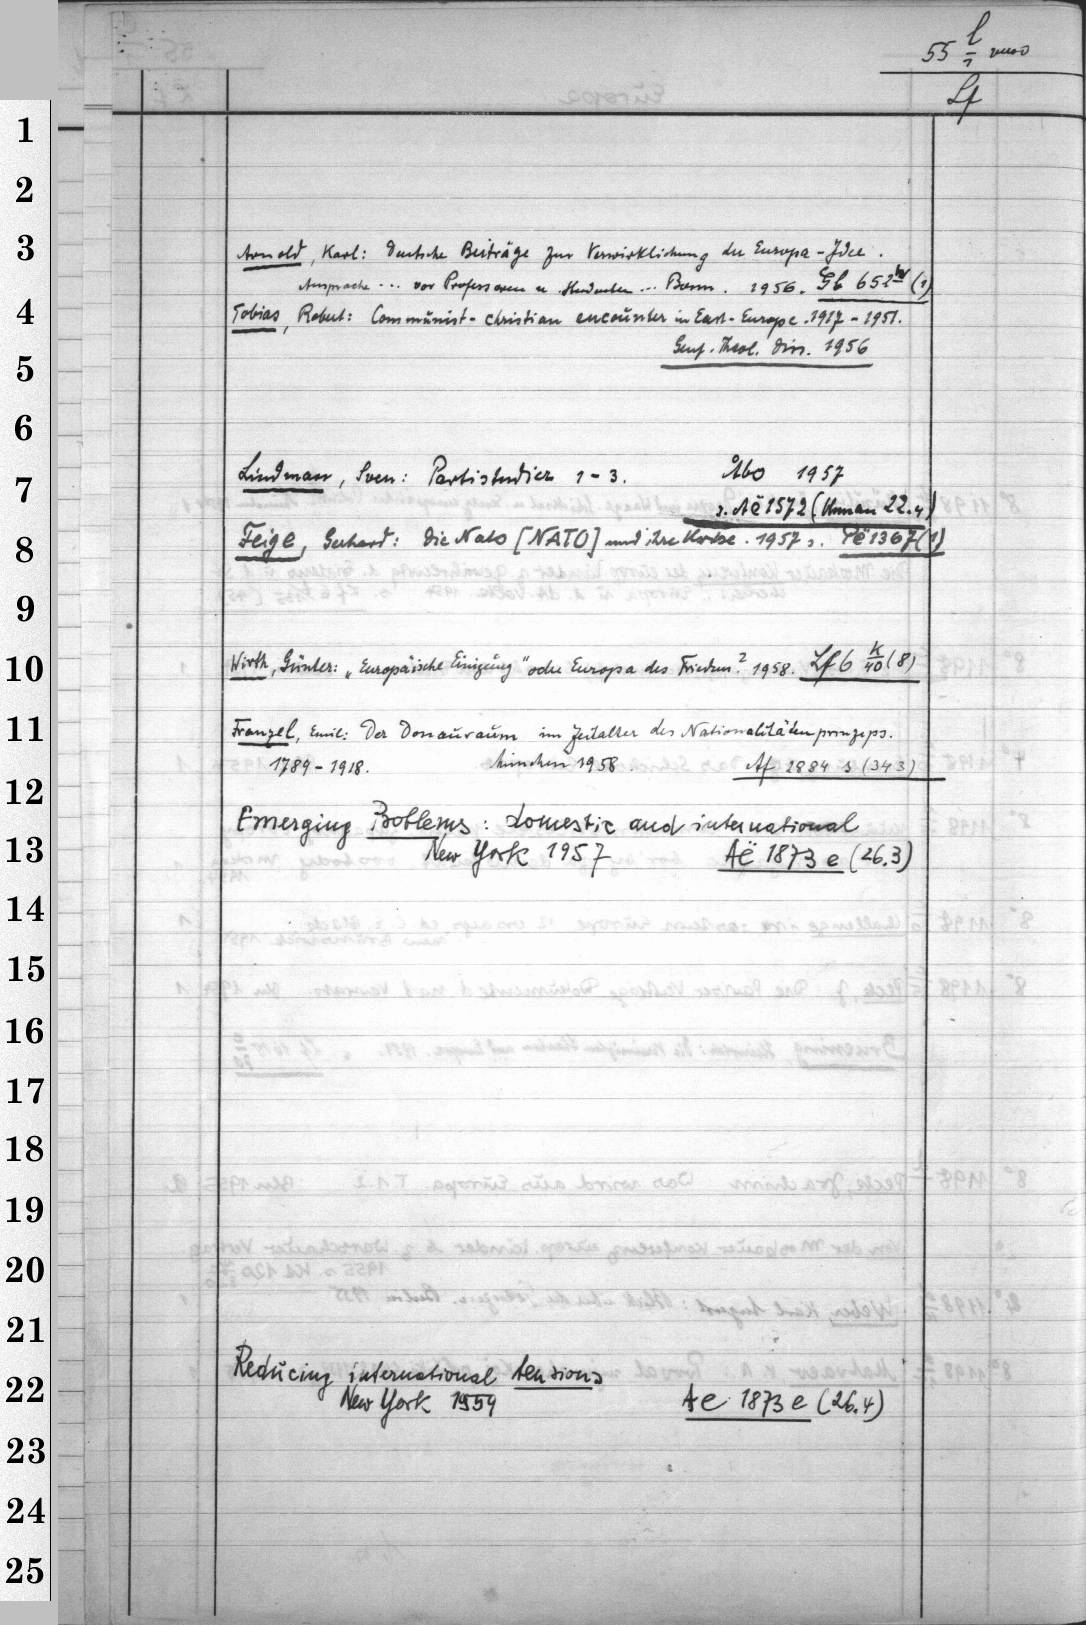 55 l/1 verso
Lf
1
2
3
Arnold, Karl: Deutsche Beiträge zur Verwirklichung der Europa-Idee.
Ansprache ... vor Professoren u. Studenten ... Bonn. 1956. Gb 652 (1)
4
Tobias, Robert: Communist-christian encounter in East-Europe. 1917-1951.
Genf. Theol. Diss. 1956
5
6
Lindman, Sven: Partistudier 1-3. Åbo 1957
7
s. Aë 1572 (Human 22.4)
8
Feige, Gerhard: Die Nato [NATO] und ihre Krise. 1957 s. Pë 1367 (1)
9
10
Wirth, Günter: „Europäische Einigung" oder Europa des Friedens? 1958. Lf 6 k/40 (8)
11
Franzel, Emil: Der Donauraum im Zeitalter des Nationalitätenprinzips.
1789-1918. München 1958. Af 2884 s (343)
12
Emerging Problems: domestic and international
13
New York 1957 Aë 1873 e (26.3)
14
15
16
17
18
19
20
21
Reducing international tensions
22
New York 1959 Ae 1873 e (26.4)
23
24
25